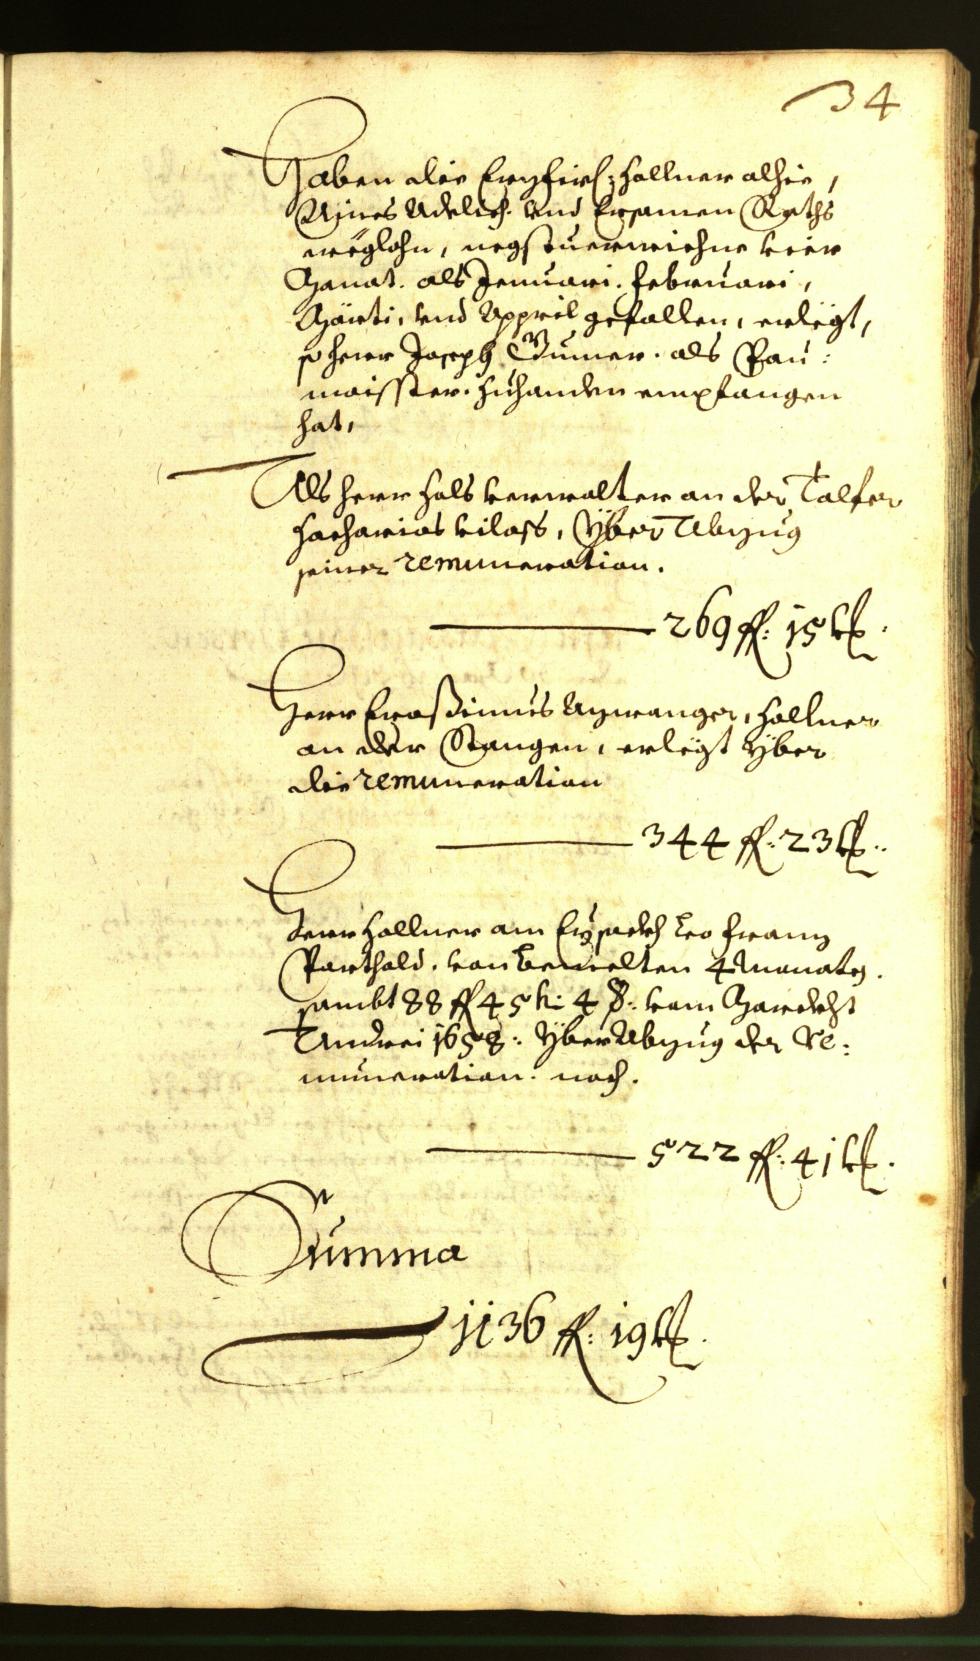 34
Haben die Erzfirst: Zollner alhie,
Aines Adelich. vnd Ersamen Raths
weeglohn, negstuerwichne vier
Monat. als Jenuari. Februari,
Märti, vnd Appril gefallen, erlegt,
so herr Joseph Gumer. als Pau:
maisster. zuhanden empfangen
hat,
Als herr Zols verwalter an der Talfer
Zacharias vilass, Yber Abzug
seiner remuneration.
269 fl: 15 kr.
Herr Eraßimus Azwanger, Zollner
an der Stangen, erlegt Yber
die remuneration
344 fl: 23 kr.
Herr Zollner am Eysackh Leo Franz
Parthold. von bemelten 4 Monaten.
sambt 88 fl 45 k: 4 d: vom Marckht
Andrei 1658: Yber Abzug der Re:
muneration. noch.
522 fl: 41 kr.
Summa
1136 fl: 19 kr.